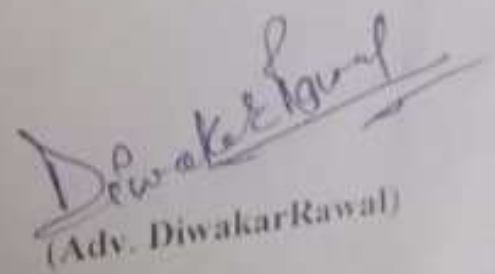 Diwakar Rawal
(Adv. DiwakarRawal)